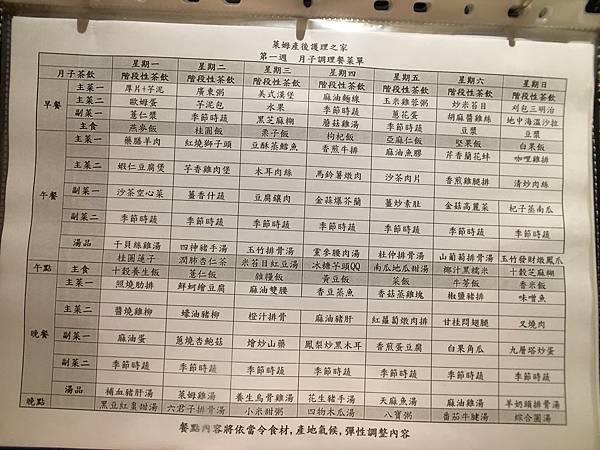 萊姆產後護理之家
第一週 月子調理餐菜單
星期一 星期二 星期三 星期四 星期五 星期六 星期日
月子茶飲 階段性茶飲 階段性茶飲 階段性茶飲 階段性茶飲 階段性茶飲 階段性茶飲 階段性茶飲
早餐
主菜一 厚片+芋泥 廣東粥 美式漢堡 麻油麵線 玉米雞蓉粥 炒米苔目 刈包三明治
主菜二 歐姆蛋 芋泥包 水果 季節時蔬 蔥花蛋 胡麻醬雞絲 地中海溫沙拉
副菜一 薏仁漿 季節時蔬 黑芝麻糊 蘑菇雞湯 季節時蔬 豆漿 豆漿
主食 燕麥飯 桂圓飯 栗子飯 枸杞飯 亞麻仁飯 堅果飯 白果飯
午餐
主菜一 藥膳羊肉 紅燒獅子頭 豆酥蒸鱈魚 香煎牛排 麻油魚膠 芹香蘭花蚌 咖哩雞排
主菜二 蝦仁豆腐煲 芋香雞肉煲 木耳肉絲 馬鈴薯燉肉 沙茶肉片 香煎雞腿排 清炒肉絲
副菜一 沙茶空心菜 薑香什蔬 豆腐鑲肉 金菇爆芥蘭 薑炒素肚 金菇高麗菜 杞子蒸南瓜
副菜二 季節時蔬 季節時蔬 季節時蔬 季節時蔬 季節時蔬 季節時蔬 季節時蔬
湯品 干貝絲雞湯 四神豬手湯 玉竹排骨湯 黨參腰肉湯 杜仲排骨湯 山葡萄排骨湯 玉竹發財燉鳳爪
午點 桂圓蓮子 潤肺杏仁茶 米苔目紅豆湯 冰糖芋頭QQ 南瓜地瓜甜湯 椰汁黑糯米 十穀芝麻糊
晚餐
主食 十穀養生飯 薏仁飯 雜糧飯 黃豆飯 菜飯 牛蒡飯 香米飯
主菜一 照燒肋排 鮮蚵燴豆腐 麻油雙腰 香豆蒸魚 香菇蒸雞塊 椒鹽豬排 味噌魚
主菜二 醬燒雞柳 蠔油豬柳 橙汁排骨 麻油豬肝 紅蘿蔔燉肉排 甘桂悶翅腿 叉燒肉
副菜一 麻油蛋 蔥燒杏鮑菇 燴炒山藥 鳳梨炒黑木耳 香煎蛋豆腐 白果角瓜 九層塔炒蛋
副菜二 季節時蔬 季節時蔬 季節時蔬 季節時蔬 季節時蔬 季節時蔬 季節時蔬
湯品 補血豬肝湯 萊姆雞湯 養生烏骨雞湯 花生豬手湯 天麻魚湯 麻油雞湯 羊奶頭排骨湯
晚點 黑豆紅棗甜湯 六君子排骨湯 小米甜粥 四物木瓜湯 八寶粥 番茄牛腱湯 綜合圓湯
餐點內容將依當令食材,產地氣候,彈性調整內容